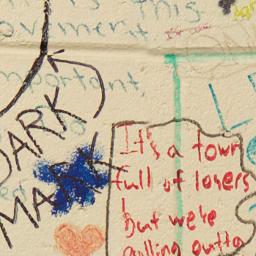 this
ovement.
important,
DARK
MARK
It's a town
full of losers
but we're
pulling outta